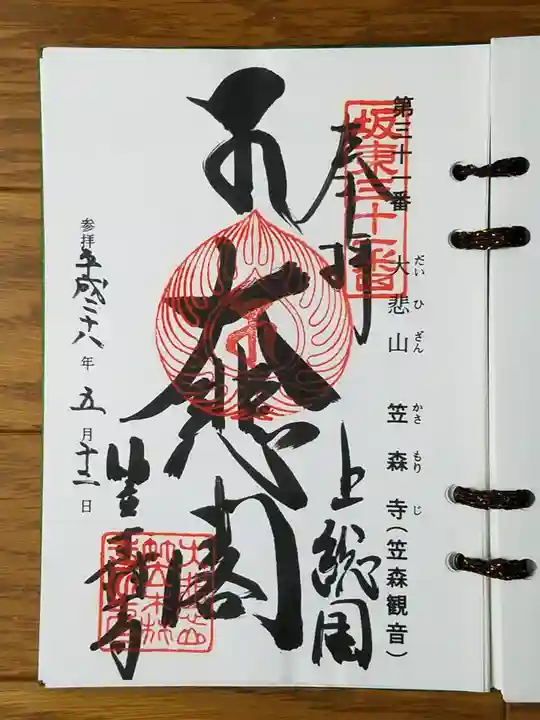 第三十一番 大悲山 笠森寺(笠森観音)
だい ひ ざん かさ もり じ
坂東三十一番
奉拝
上総国
大悲閣
笠森寺
参拝 平成二十八年 五月 十二日